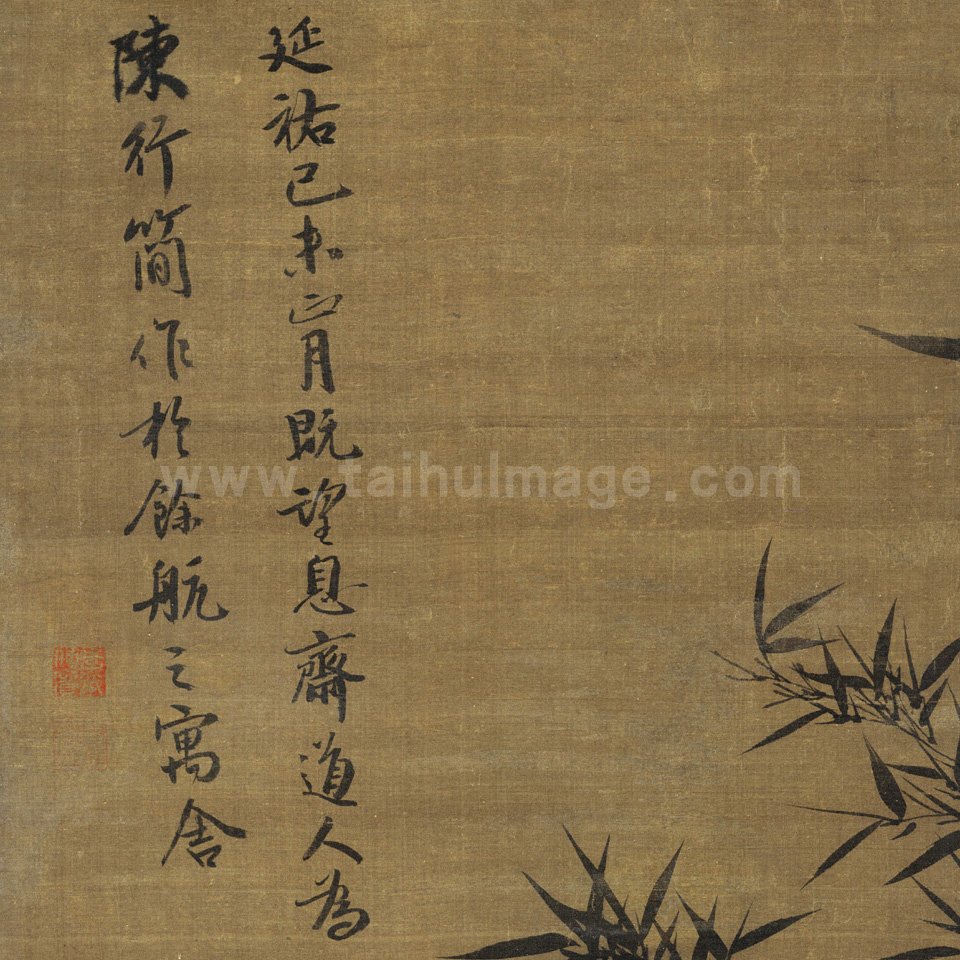 延祐己未正月既望息齋道人為
陳行簡作於餘航之寓舍
www.taihuImage.com